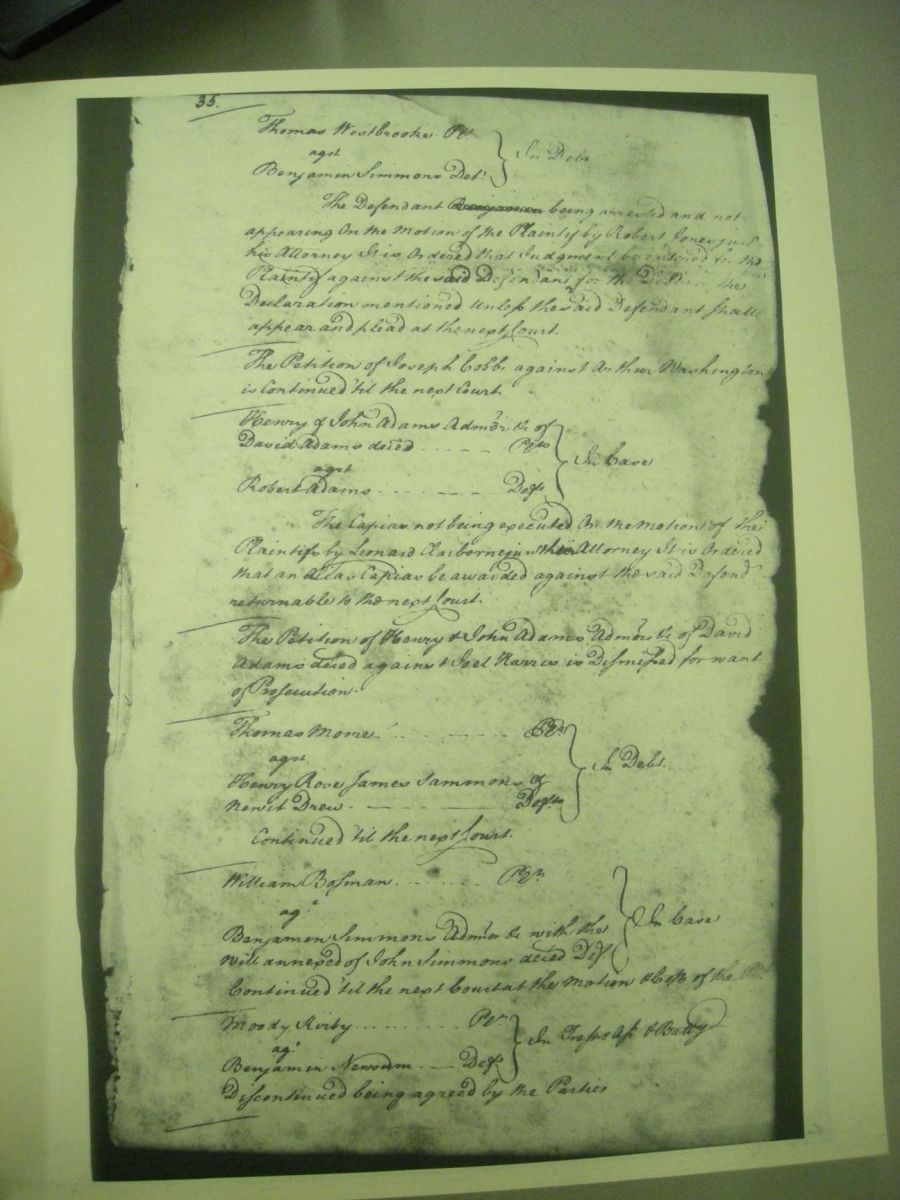 35.
Thomas Westbrooke Plt
agst
Benjamin Simmons Deft
In Debt
The Defendant Benjamin being arrested and not
appearing On the Motion of the Plaintif by Robert Jones jun
his Attorney It is Ordered that Judgment be entered for the
Plaintif against the said Defendant for the Debt in the
Declaration mentioned Unless the said Defendant shall
appear and plead at the next Court.
The Petition of Joseph Cobbs against Arthur Washington
is Continued 'til the next Court.
Henry & John Adams Admors &c of
David Adams deced Plfs
agst
Robert Adams Deft
In Case
The Capias not being executed On the motion of the
Plaintifs by Leonard Claiborne jun their Attorney It is Ordered
that an Alias Capias be awarded against the said Defend
returnable to the next Court.
The Petition of Henry & John Adams Admors &c of David
Adams deced against Joel Harris is Dismissed for want
of Prosecution.
Thomas Morre Plt
agst
Henry Rose James Sammons &
Newit Drew Defts
In Debt.
Continued 'til the next Court.
William Bosman Plt
agt
Benjamin Simmons Admor &c with the
Will annexed of John Simmons deced Deft
In Case
Continued 'til the next Court at the motion & Costs of the
Moody Kirby Plt
agt
Benjamin Newsum Deft
In Tresps Asst & Battry
Discontinued being agreed by the Parties